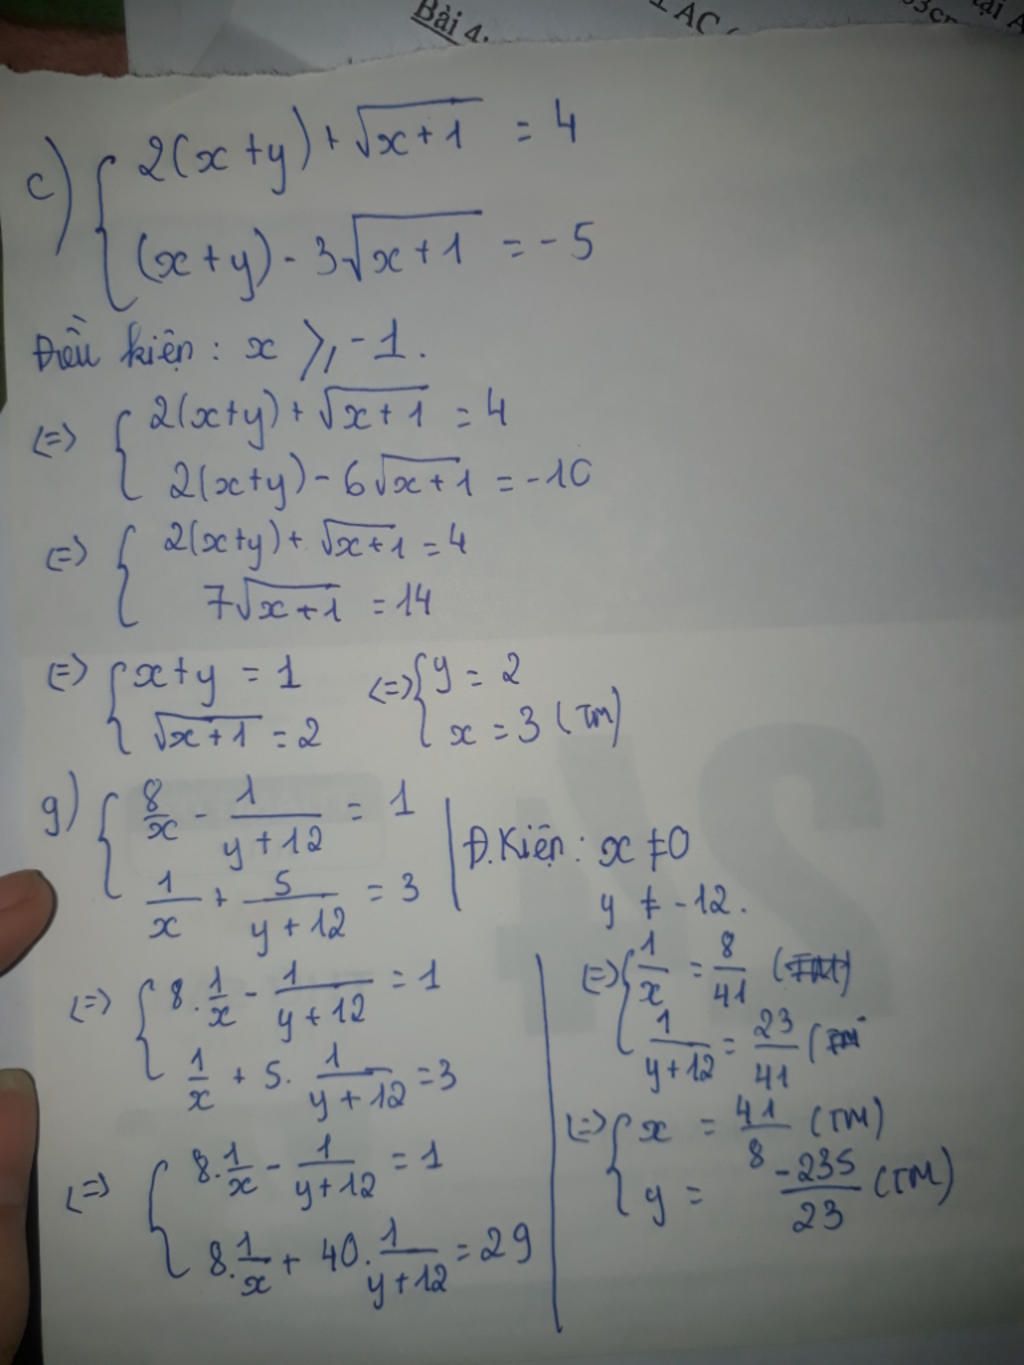 Bài 4.
1 AC (
c) { 2(x+y) + √(x+1) = 4
(x+y) - 3√(x+1) = -5
Điều kiện : x ⩾ -1.
(=) { 2(x+y) + √(x+1) = 4
2(x+y) - 6√(x+1) = -10
(=) { 2(x+y) + √(x+1) = 4
7√(x+1) = 14
(=) { x+y = 1 (=) { y = 2
√(x+1) = 2 x = 3 (TM)
g) { 8/x - 1/(y+12) = 1
1/x + 5/(y+12) = 3
Đ.Kiện : x ≠ 0
y ≠ -12.
(=) { 8.1/x - 1/(y+12) = 1
1/x + 5. 1/(y+12) = 3
(=) { 8.1/x - 1/(y+12) = 1
8.1/x + 40. 1/(y+12) = 29
(=) { 1/x = 8/41
1/(y+12) = 23/41
(=) { x = 41/8 (TM)
y = -235/23 (TM)